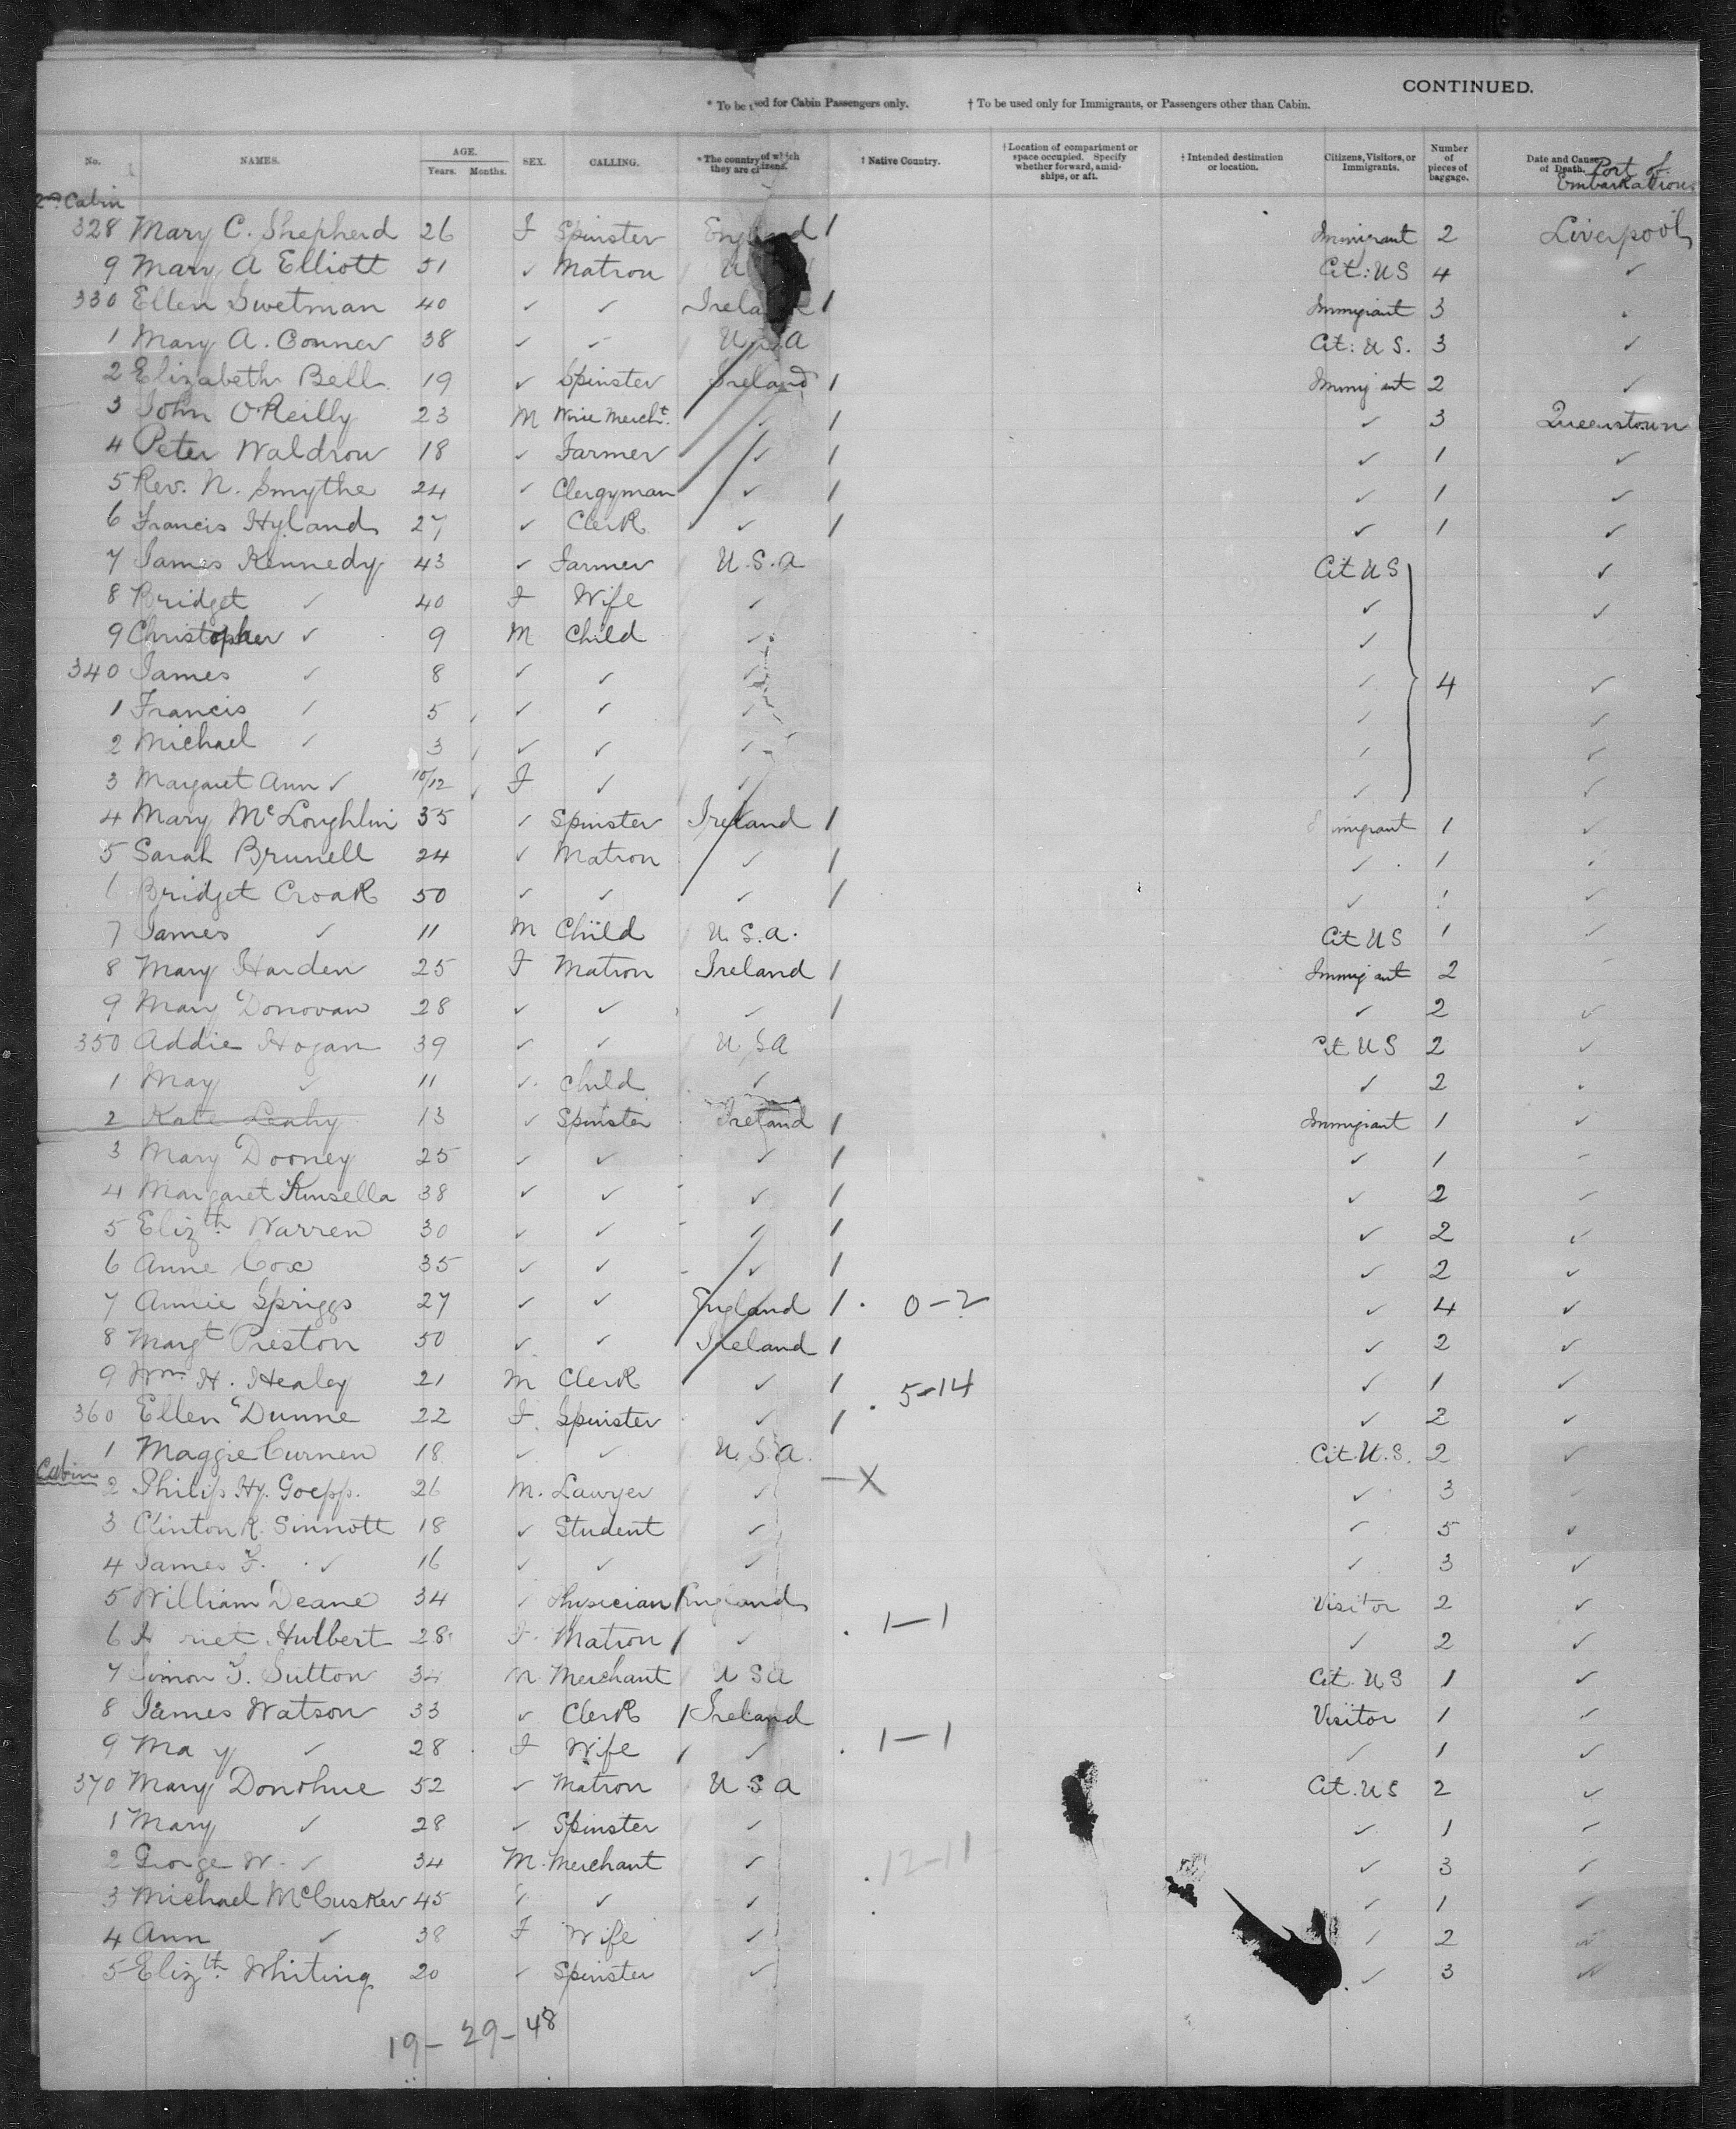 CONTINUED.
* To be used for Cabin Passengers only. † To be used only for Immigrants, or Passengers other than Cabin.
No. NAMES. AGE. Years. Months. SEX. CALLING. * The country of which they are citizens. † Native Country. † Location of compartment or space occupied. Specify whether forward, amidships, or aft. † Intended destination or location. Citizens, Visitors, or Immigrants. Number of pieces of baggage. Date and Cause of Death. Port of Embarkation
2nd Cabin
328 Mary C. Shepherd 26 F Spinster England / Immigrant 2 Liverpool
9 Mary A Elliott 51 ✓ Matron U Cit: US 4 ✓
330 Ellen Swetman 40 ✓ ✓ Ireland / Immigrant 3
1 Mary A. Conner 38 ✓ ✓ U.S.A Cit: U S. 3 ✓
2 Elizabeth Bell 19 ✓ Spinster Ireland / Immigrant 2 ✓
3 John O'Reilly 23 M Wine Mercht. ✓ / ✓ 3 Queenstown
4 Peter Waldron 18 ✓ Farmer ✓ / ✓ 1 ✓
5 Rev. N. Smythe 24 ✓ Clergyman ✓ / ✓ 1 ✓
6 Francis Hyland 27 ✓ Clerk ✓ / ✓ 1 ✓
7 James Kennedy 43 ✓ Farmer U.S.A Cit US ✓
8 Bridget ✓ 40 F Wife ✓ ✓ ✓
9 Christopher ✓ 9 M Child ✓ ✓
340 James ✓ 8 ✓ ✓ ✓ ✓ 4 ✓
1 Francis ✓ 5 ✓ ✓ ✓ ✓ ✓
2 Michael ✓ 3 ✓ ✓ ✓ ✓ ✓
3 Margaret Ann ✓ 10/12 F ✓ ✓ ✓ ✓
4 Mary McLoughlin 35 ✓ Spinster Ireland / Immigrant 1 ✓
5 Sarah Brunell 24 ✓ Matron ✓ / ✓ 1 ✓
6 Bridget Croak 50 ✓ ✓ ✓ / ✓ 1 ✓
7 James ✓ 11 M Child U.S.A. Cit US 1 ✓
8 Mary Harden 25 F Matron Ireland / Immigrant 2
9 Mary Donovan 28 ✓ ✓ ✓ / ✓ 2 ✓
350 Addie Hogan 39 ✓ ✓ U.S.A Cit US 2 ✓
1 May ✓ 11 ✓ Child ✓ ✓ 2
2 Kate Leahy 13 ✓ Spinster Ireland / Immigrant 1 ✓
3 Mary Dooney 25 ✓ ✓ ✓ / ✓ 1
4 Margaret Kinsella 38 ✓ ✓ ✓ / ✓ 2
5 Elizth Warren 30 ✓ ✓ ✓ / ✓ 2 ✓
6 Anne Cox 35 ✓ ✓ ✓ / ✓ 2 ✓
7 Annie Spriggs 27 ✓ ✓ England / 0-2 ✓ 4 ✓
8 Margt Preston 50 ✓ ✓ Ireland / ✓ 2 ✓
9 Wm. H. Healey 21 M Clerk ✓ / 5-14 ✓ 1 ✓
360 Ellen Dunne 22 F. Spinster ✓ / ✓ 2 ✓
1 Maggie Curnen 18 ✓ ✓ U.S.A. Cit. U.S. 2 ✓
Cabin
2 Philip Hy. Goepp. 26 M. Lawyer ✓ —X ✓ 3
3 Clinton R. Sinnott 18 ✓ Student ✓ ✓ 5 ✓
4 James F. ✓ 16 ✓ ✓ ✓ ✓ 3 ✓
5 William Deane 34 ✓ Physician / England Visitor 2 ✓
6 riet Hulbert 28 F. Matron / ✓ 1-1 ✓ 2 ✓
7 Simon F. Sutton 34 M Merchant U S A Cit. US 1 ✓
8 James Watson 33 ✓ Clerk / Ireland Visitor 1 ✓
9 Ma y ✓ 28 F Wife / ✓ 1-1 ✓ 1 ✓
370 Mary Donohue 52 ✓ Matron U S A Cit. US 2 ✓
1 Mary ✓ 28 ✓ Spinster ✓ ✓ 1 ✓
2 George W. ✓ 34 M. Merchant ✓ 12-11 ✓ 3 ✓
3 Michael McCusker 45 ✓ ✓ ✓ ✓ 1 ✓
4 Ann ✓ 38 F Wife ✓ ✓ 2 ✓
5 Elizth. Whiting 20 ✓ Spinster ✓ ✓ 3 ✓
19- 29- 48